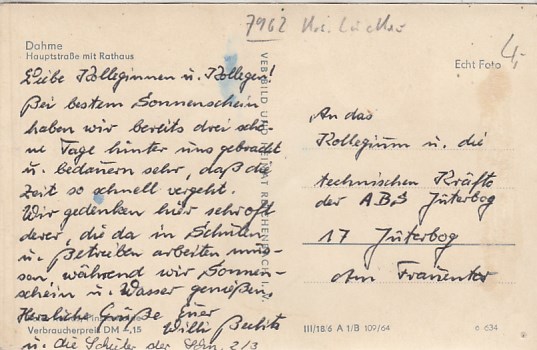 7962 Krs. Luckau
4,-
Dahme
Hauptstraße mit Rathaus
Echt Foto
Liebe Kolleginnen u. Kollegen!
Bei bestem Sonnenschein
haben wir bereits drei schö-
ne Tage hinter uns gebracht
u. bedauern sehr, daß die
Zeit so schnell vergeht.
Wir gedenken hier sehr oft
derer, die da in Schulen
u. Betrieben arbeiten müs-
sen, während wir Sonnen-
schein u. Wasser genießen.
Herzliche Grüße Euer
Willi
u. die Schüler der 2/3
Verbraucherpreis DM -,15
VEB BILD UND HEIMAT REICHENBACH I. V.
An das
Kollegium u. die
technischen Kräfte
der ABS Jüterbog
17 Jüterbog
Am Frauentor
III/18/6 A 1/B 109/64
6 634